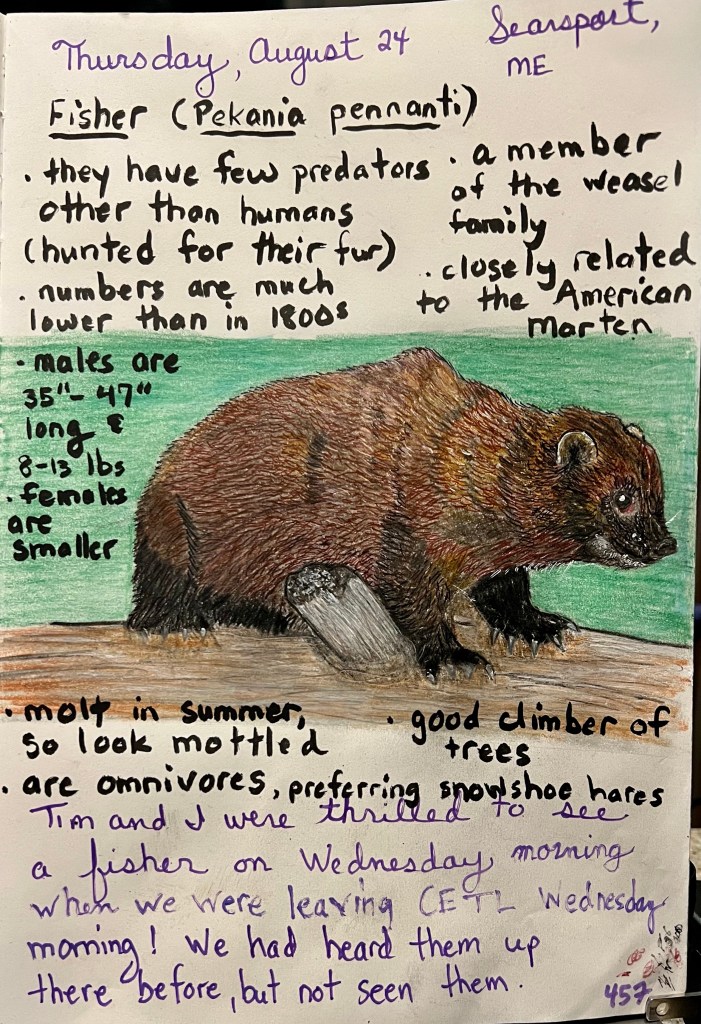 Thursday, August 24
Searsport,
ME
Fisher (Pekania pennanti)
• they have few predators
other than humans
(hunted for their fur)
• numbers are much
lower than in 1800s
• a member
of the weasel
family
• closely related
to the American
marten
• males are
35"- 47"
long &
8-13 lbs
• females
are
smaller
• molt in summer,
so look mottled
• good climber of
trees
• are omnivores, preferring snowshoe hares
Tim and I were thrilled to see
a fisher on Wednesday morning
when we were leaving CETL Wednesday
morning! We had heard them up
there before, but not seen them.
457